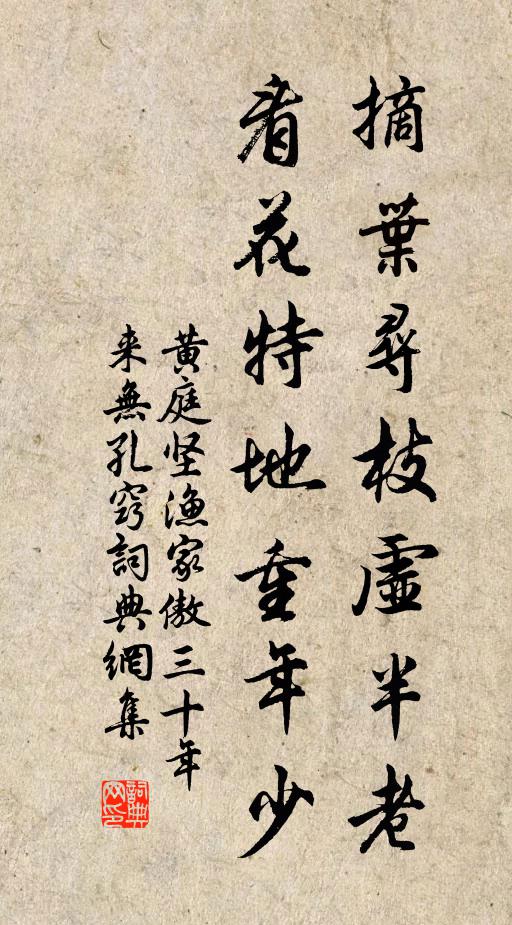 摘葉尋枝虛半老
看花特地重年少
黄庭坚漁家傲三十年
来無孔竅詞典網集
詞典
网印